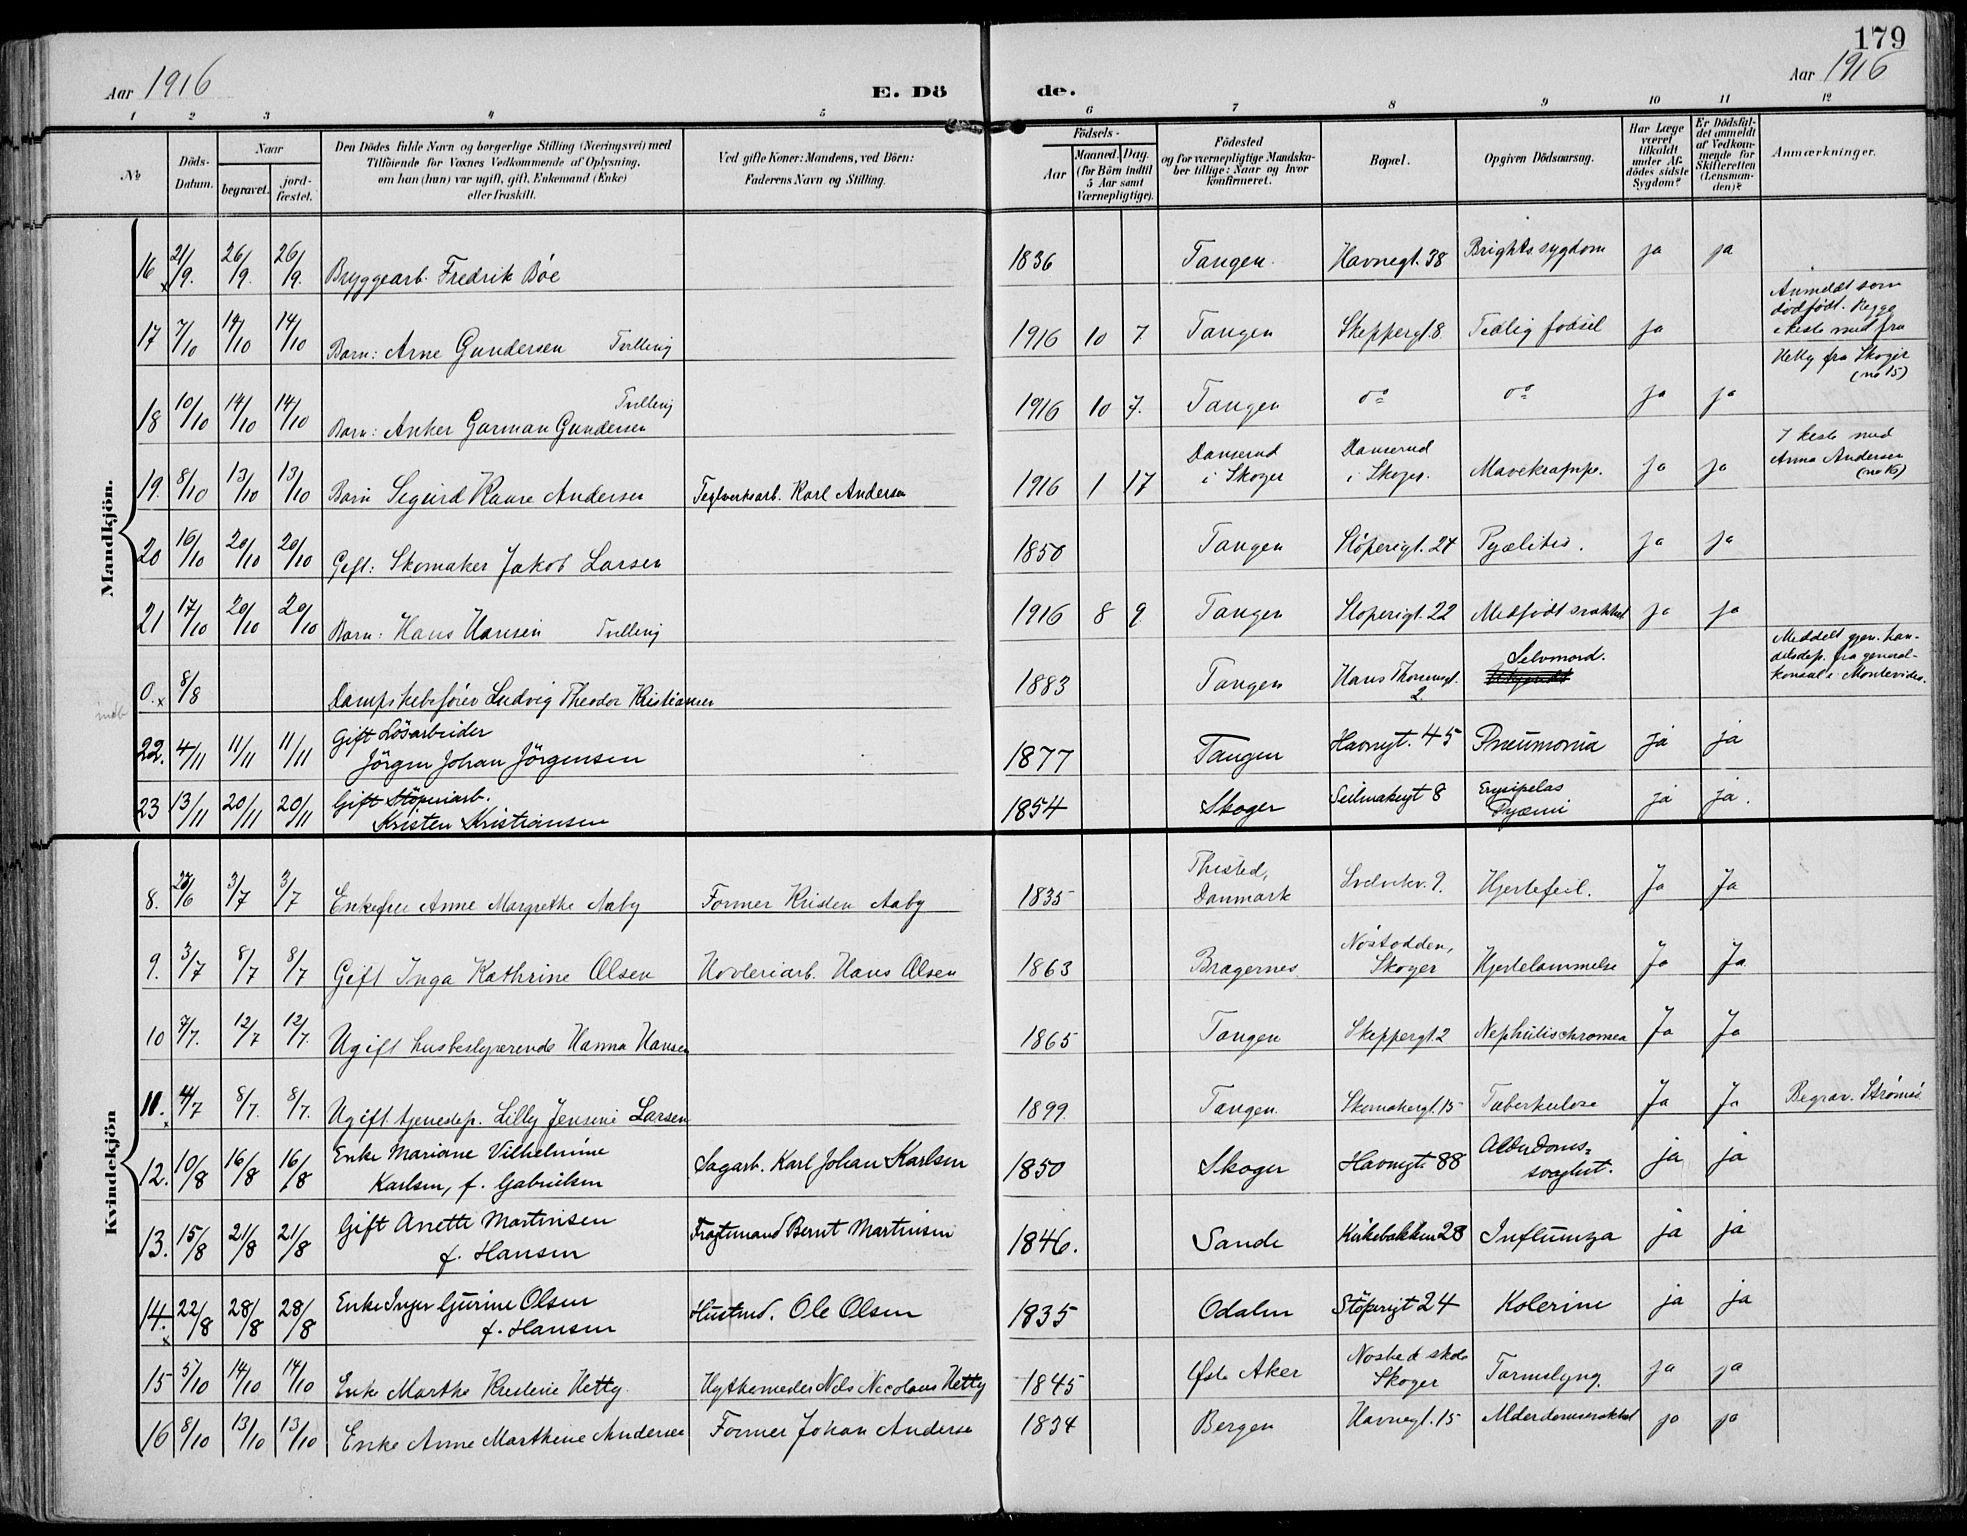 179
Aar 1916
E. Dö
de.
Aar 1916
1 2 3 4 5 6 7 8 9 10 11 12
No
Döds-
Datum.
Naar
begravet.
jord-
fæstet.
Den Dödes fulde Navn og borgerlige Stilling (Næringsvei) med
Tilföiende for Voxnes Vedkommende af Oplysning,
om han (hun) var ugift, gift, Enkemand (Enke)
eller fraskilt.
Ved gifte Koner: Mandens, ved Börn:
Faderens Navn og Stilling.
Födsels-
Aar
Maaned. Dag.
(for Börn indtil
5 Aar samt
Værnepligtige).
Födested
og for værnepligtige Mandska-
ber tillige: Naar og hvor
konfirmeret.
Bopæl.
Opgiven Dödsaarsag.
Har Læge
været
tilkaldt
under Af-
dödes sidste
Sygdom?
Er Dödsfal-
det anmeldt
af Vedkom-
mende for
Skifteretten
(Lensman-
den)?
Anmærkninger.
Mandkjön.
16 21/9. 26/9. 26/9. Bryggearb. Fredrik Bóe 1836 Tangen. Havnegt. 38 Brights sygdom ja ja
17 7/10 14/10 14/10 Barn: Arne Gundersen Tvilling 1916 10 7. Tangen Skippergt. 8. Tidlig fødsel ja
Anmeldt som
dödfödt. Begge
i kiste med fru
Hetty fra Skoger
(no 15)
18 10/10 14/10 14/10 Barn: Anker Garman Gundersen Tvilling 1916 10 7. Tangen do do ja ja
19. 8/10 13/10 13/10 Barn Sigurd Kaare Andersen Teglverksarb. Karl Andersen 1916 1 17 Danserud
i Skoger Danserud
i Skoger. Mavekrampe. ja ja
I kiste med
Anna Andersen
(no 16)
20 16/10 20/10 20/10 Gift: Skomaker Jakob Larsen 1850 Tangen Stóperigt. 24 Pyælitis. ja ja
21 17/10 20/10 20/10 Barn: Hans Hansen Tvilling 1916 8 9 Tangen Stóperigt. 22 Medfödt svakhet ja ja
0. 8/8 Dampskibsfórer Ludvig Theodor Kristiansen 1883 Tangen Hans Thornesgt.
2. Selvmord.
Meddelt gjen. han-
delsdep. fra general-
konsul i Montevideo.
22. 4/11 11/11 11/11 Gift Lösarbeider
Jörgen Johan Jörgensen 1877 Tangen Havnegt. 45 Pneumonia ja ja
23 13/11 20/11 20/11 Gift Stöperiarb.
Kristen Kristiansen 1854 Skoger Seilmakergt 8 Erysipelas
Pyæmi ja ja.
Kvindekjön
8. 28/6 3/7 3/7 Enkefru Anne Margrethe Aaby Former Kristen Aaby 1835 Thisted,
Danmark Svelvikv. 9. Hjertefeil. Ja Ja
9. 3/7 8/7 8/7 Gift Inga Kathrine Olsen Hovleriarb. Hans Olsen 1863 Bragernes Nóstodden,
Skoger Hjertelammelse Ja Ja
10 7/7. 12/7 12/7. Ugift husbestyrerinde Hanna Hansen 1865 Tangen Skippergt. 2 Ja Ja
11. 4/7 8/7. 8/7. Ugift tjenestep. Lilly Jensine Larsen 1899. Tangen. Skomakergt. 15 Tuberkulose Ja Ja Begrav. Strómsó
12. 10/8 16/8 16/8 Enke Mariane Vilhelmine
Karlsen, f. Gabrielsen Sagarb. Karl Johan Karlsen 1850 Skoger Havnegt. 88 Alderdoms-
svaghet. ja ja
13. 15/8 21/8 21/8 Gift Anette Martinsen
f. Hansen Fragtemand Bernt Martinsen 1846. Sande Kirkebakken 28 Influenza ja ja
14. 22/8 28/8 28/8 Enke Inger Gurine Olsen
f. Hansen Hustmd. Ole Olsen 1835 Odalen Stöperigt 24 Kolerine ja ja
15 5/10 14/10 14/10 Enke Marthe Kristine Hetty. Hyttemester Nils Nicolaus Hetty 1845 Østre Aker Skoger Tarmslyng. ja ja
16 8/10 13/10 13/10 Enke Anne Marthine Andersen Former Johan Andersen 1834 Bergen Havnegt. 15 Alderdomssvakhet ja ja